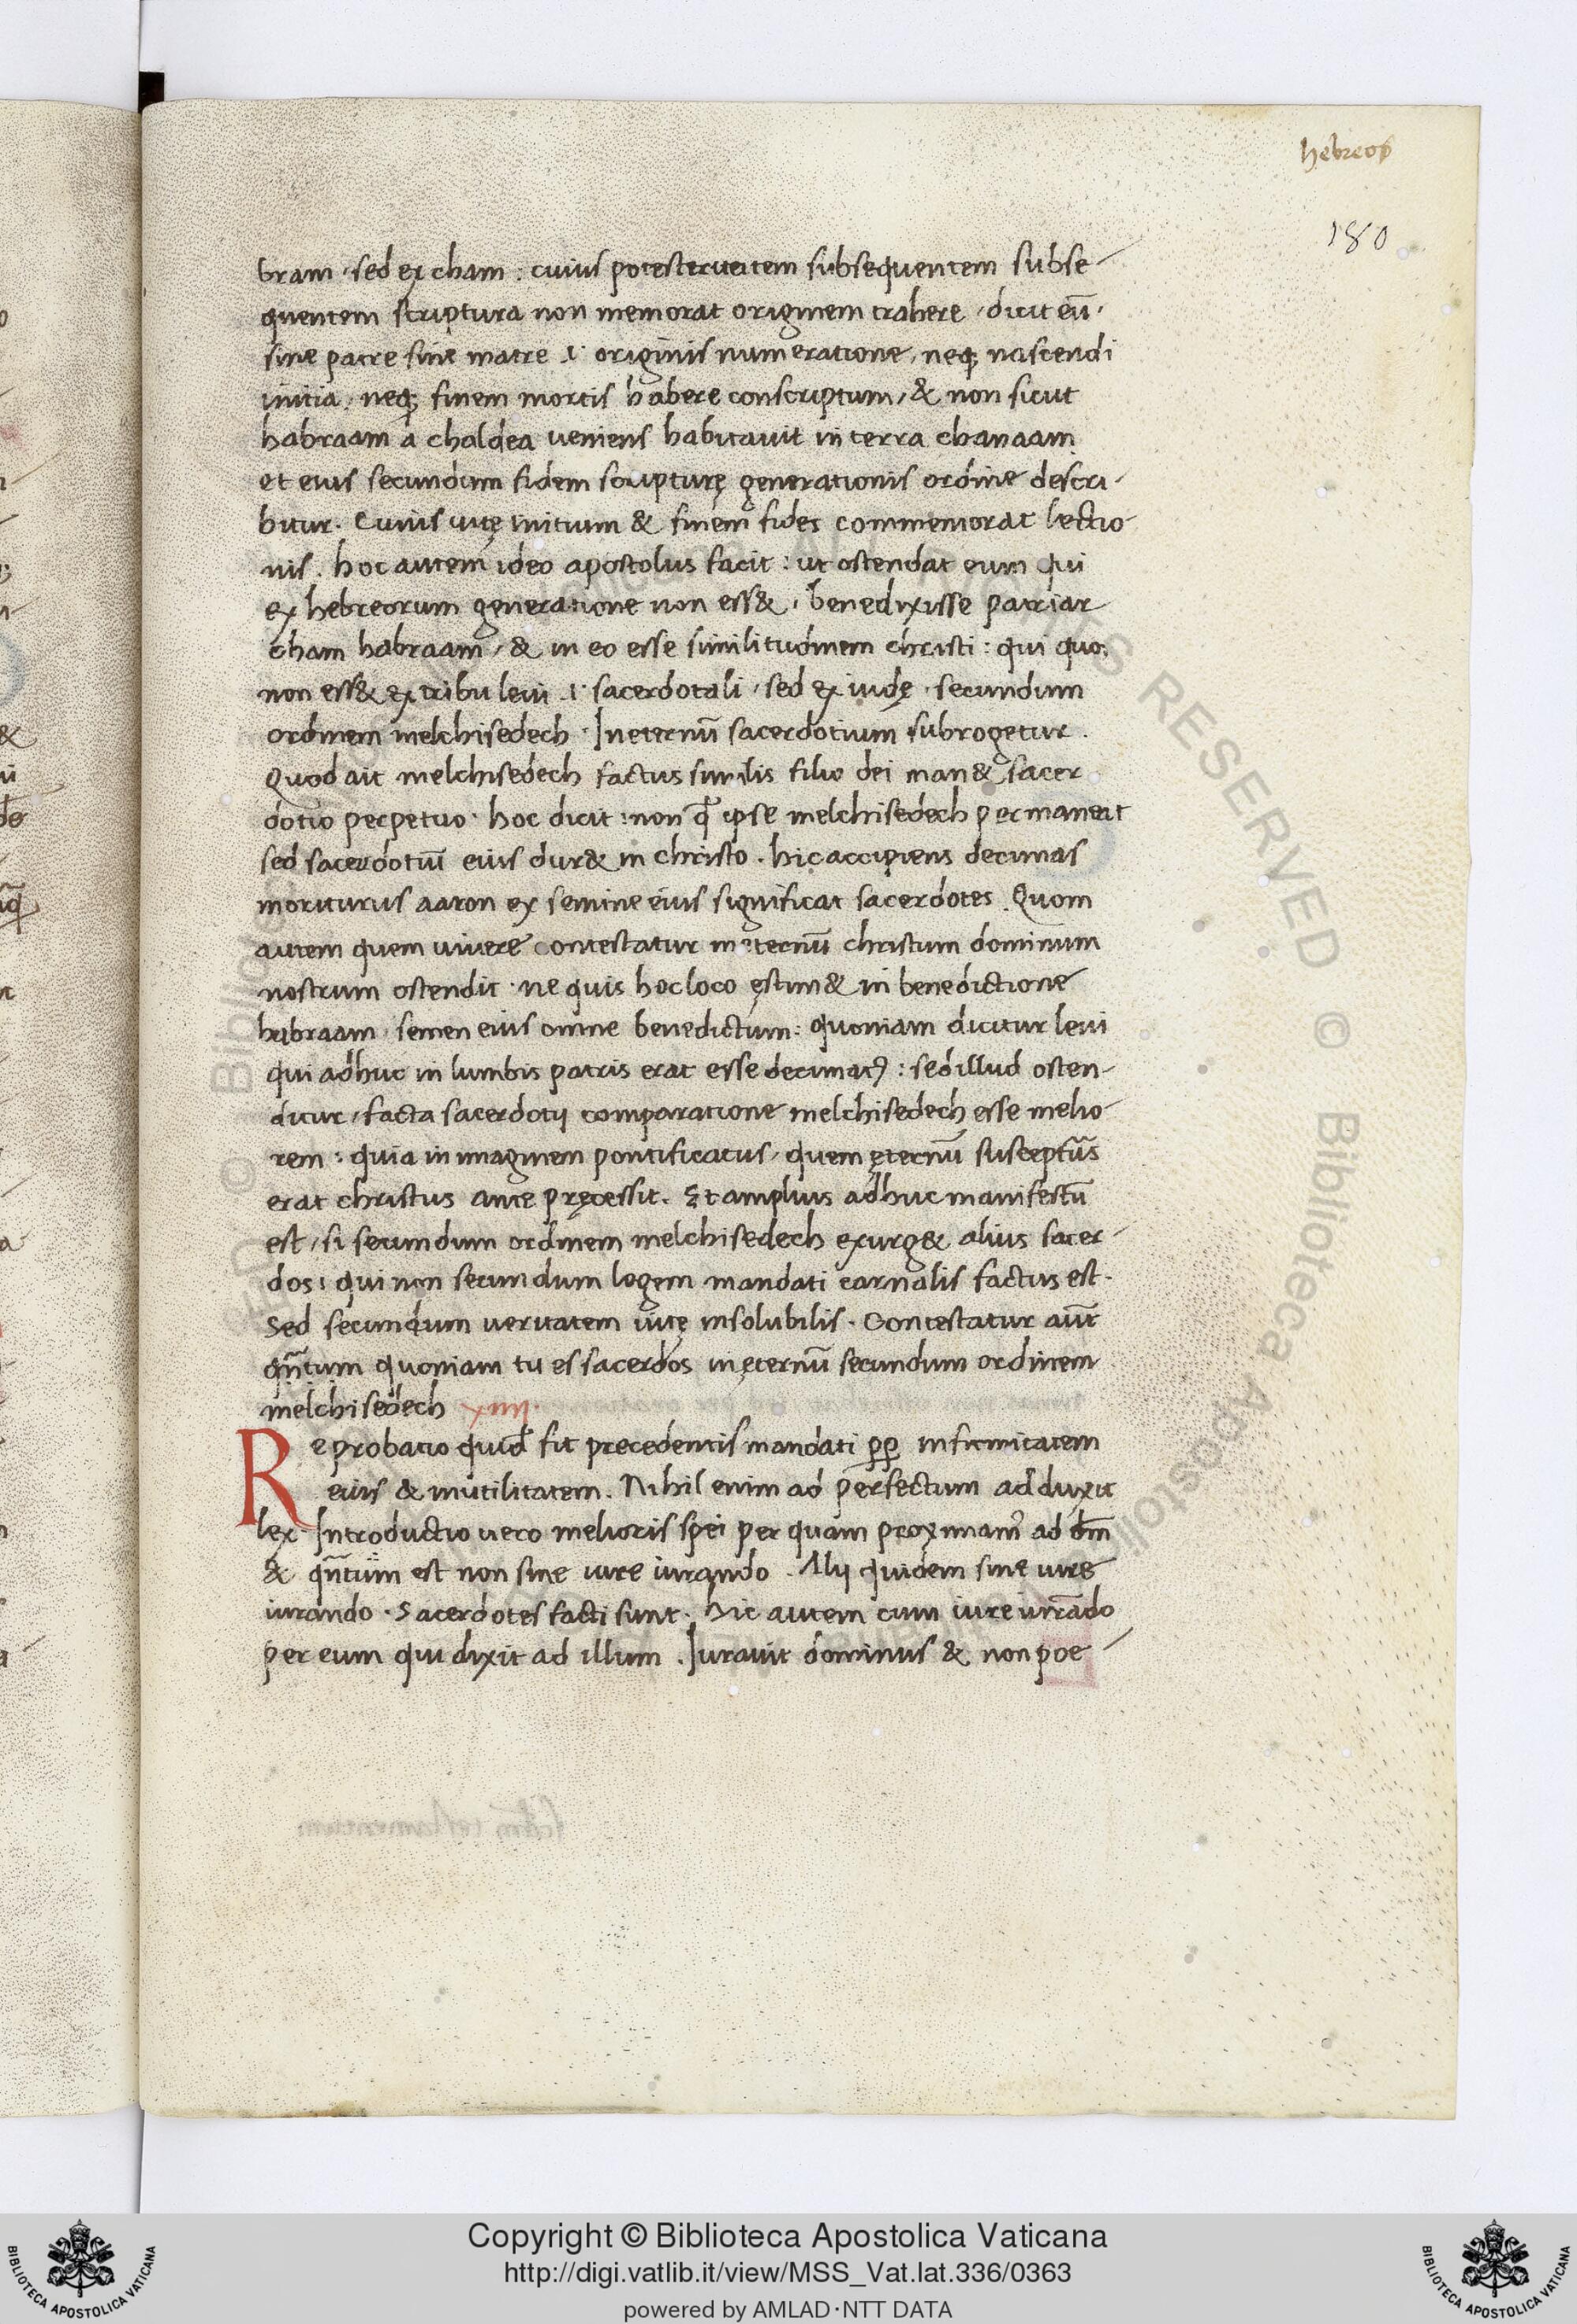 hebreoꝝ
180
bram · sed ex cham : cuius potesteritatem subsequentem subse-
quentem scriptura non memorat originem trahere · dicit eū ·
sine patre sine matre .i. originis numeratione, neq; nascendi
initia, neq; finem mortis habere conscriptum, & non sicut
habraam a chaldea ueniens habitauit in terra chanaam
et eius secundum fidem scripturę generationis ordine descri-
bitur. Cuius uitę initium & finem fides commemorat lectio-
nis. hoc autem ideo apostolus facit : ut ostendat eum qui
ex hebreorum generatione non ess&, benedixisse patriar
cham habraam, & in eo esse similitudinem christi : qui quo
non ess& ex tribu leui .i. sacerdotali, sed ex iudę · secundum
ordinem melchisedech · In eternū sacerdotium subrogetur.
Quod ait melchisedech factus similis filio dei man& sacer
dotio perpetuo · hoc dicit : non ꝙ ipse melchisedech permaneat
sed sacerdotiū eius dur& in christo. hic accipiens decimas
moriturus aaron ex semine eius significat sacerdotes. Quom
autem quem uiuere contestatur in eternū christum dominum
nostrum ostendit · ne quis hoc loco ęstim& in benedictione
habraam · semen eius omne benedictum : quoniam dicitur leui
qui adhuc in lumbis patris erat esse decimatꝰ : sed illud osten-
ditur, facta sacerdotij comparatione melchisedech esse melio
rem : quia in imaginem pontificatus, quem ęternū suscepturūs
erat christus ante pręcessit. Et amplius adhuc manifestū
est, si secundum ordinem melchisedech exurg& alius sacer-
dos : qui non secundum legem mandati carnalis factus est.
Sed secundum ueritatem uitę insolubilis. Contestatur aūt
qn̄tum quoniam tu es sacerdos in ęternū secundum ordinem
melchisedech xiiij.
Reprobatio quid̄ fit precedentis mandati ꝓꝑ infirmitatem
eius & inutilitatem. Nihil enim ad perfectum adduxit
lex. Introductio uero melioris spei per quam proximamꝰ ad dm̄
& qn̄tum est non sine iure iurando. Alij quidem sine iure
iurando · Sacerdotes facti sunt. Hic autem cum iure iurādo
per eum qui dixit ad illum. Iurauit dominus & non poe-
Copyright © Biblioteca Apostolica Vaticana
http://digi.vatlib.it/view/MSS_Vat.lat.336/0363
powered by AMLAD·NTT DATA